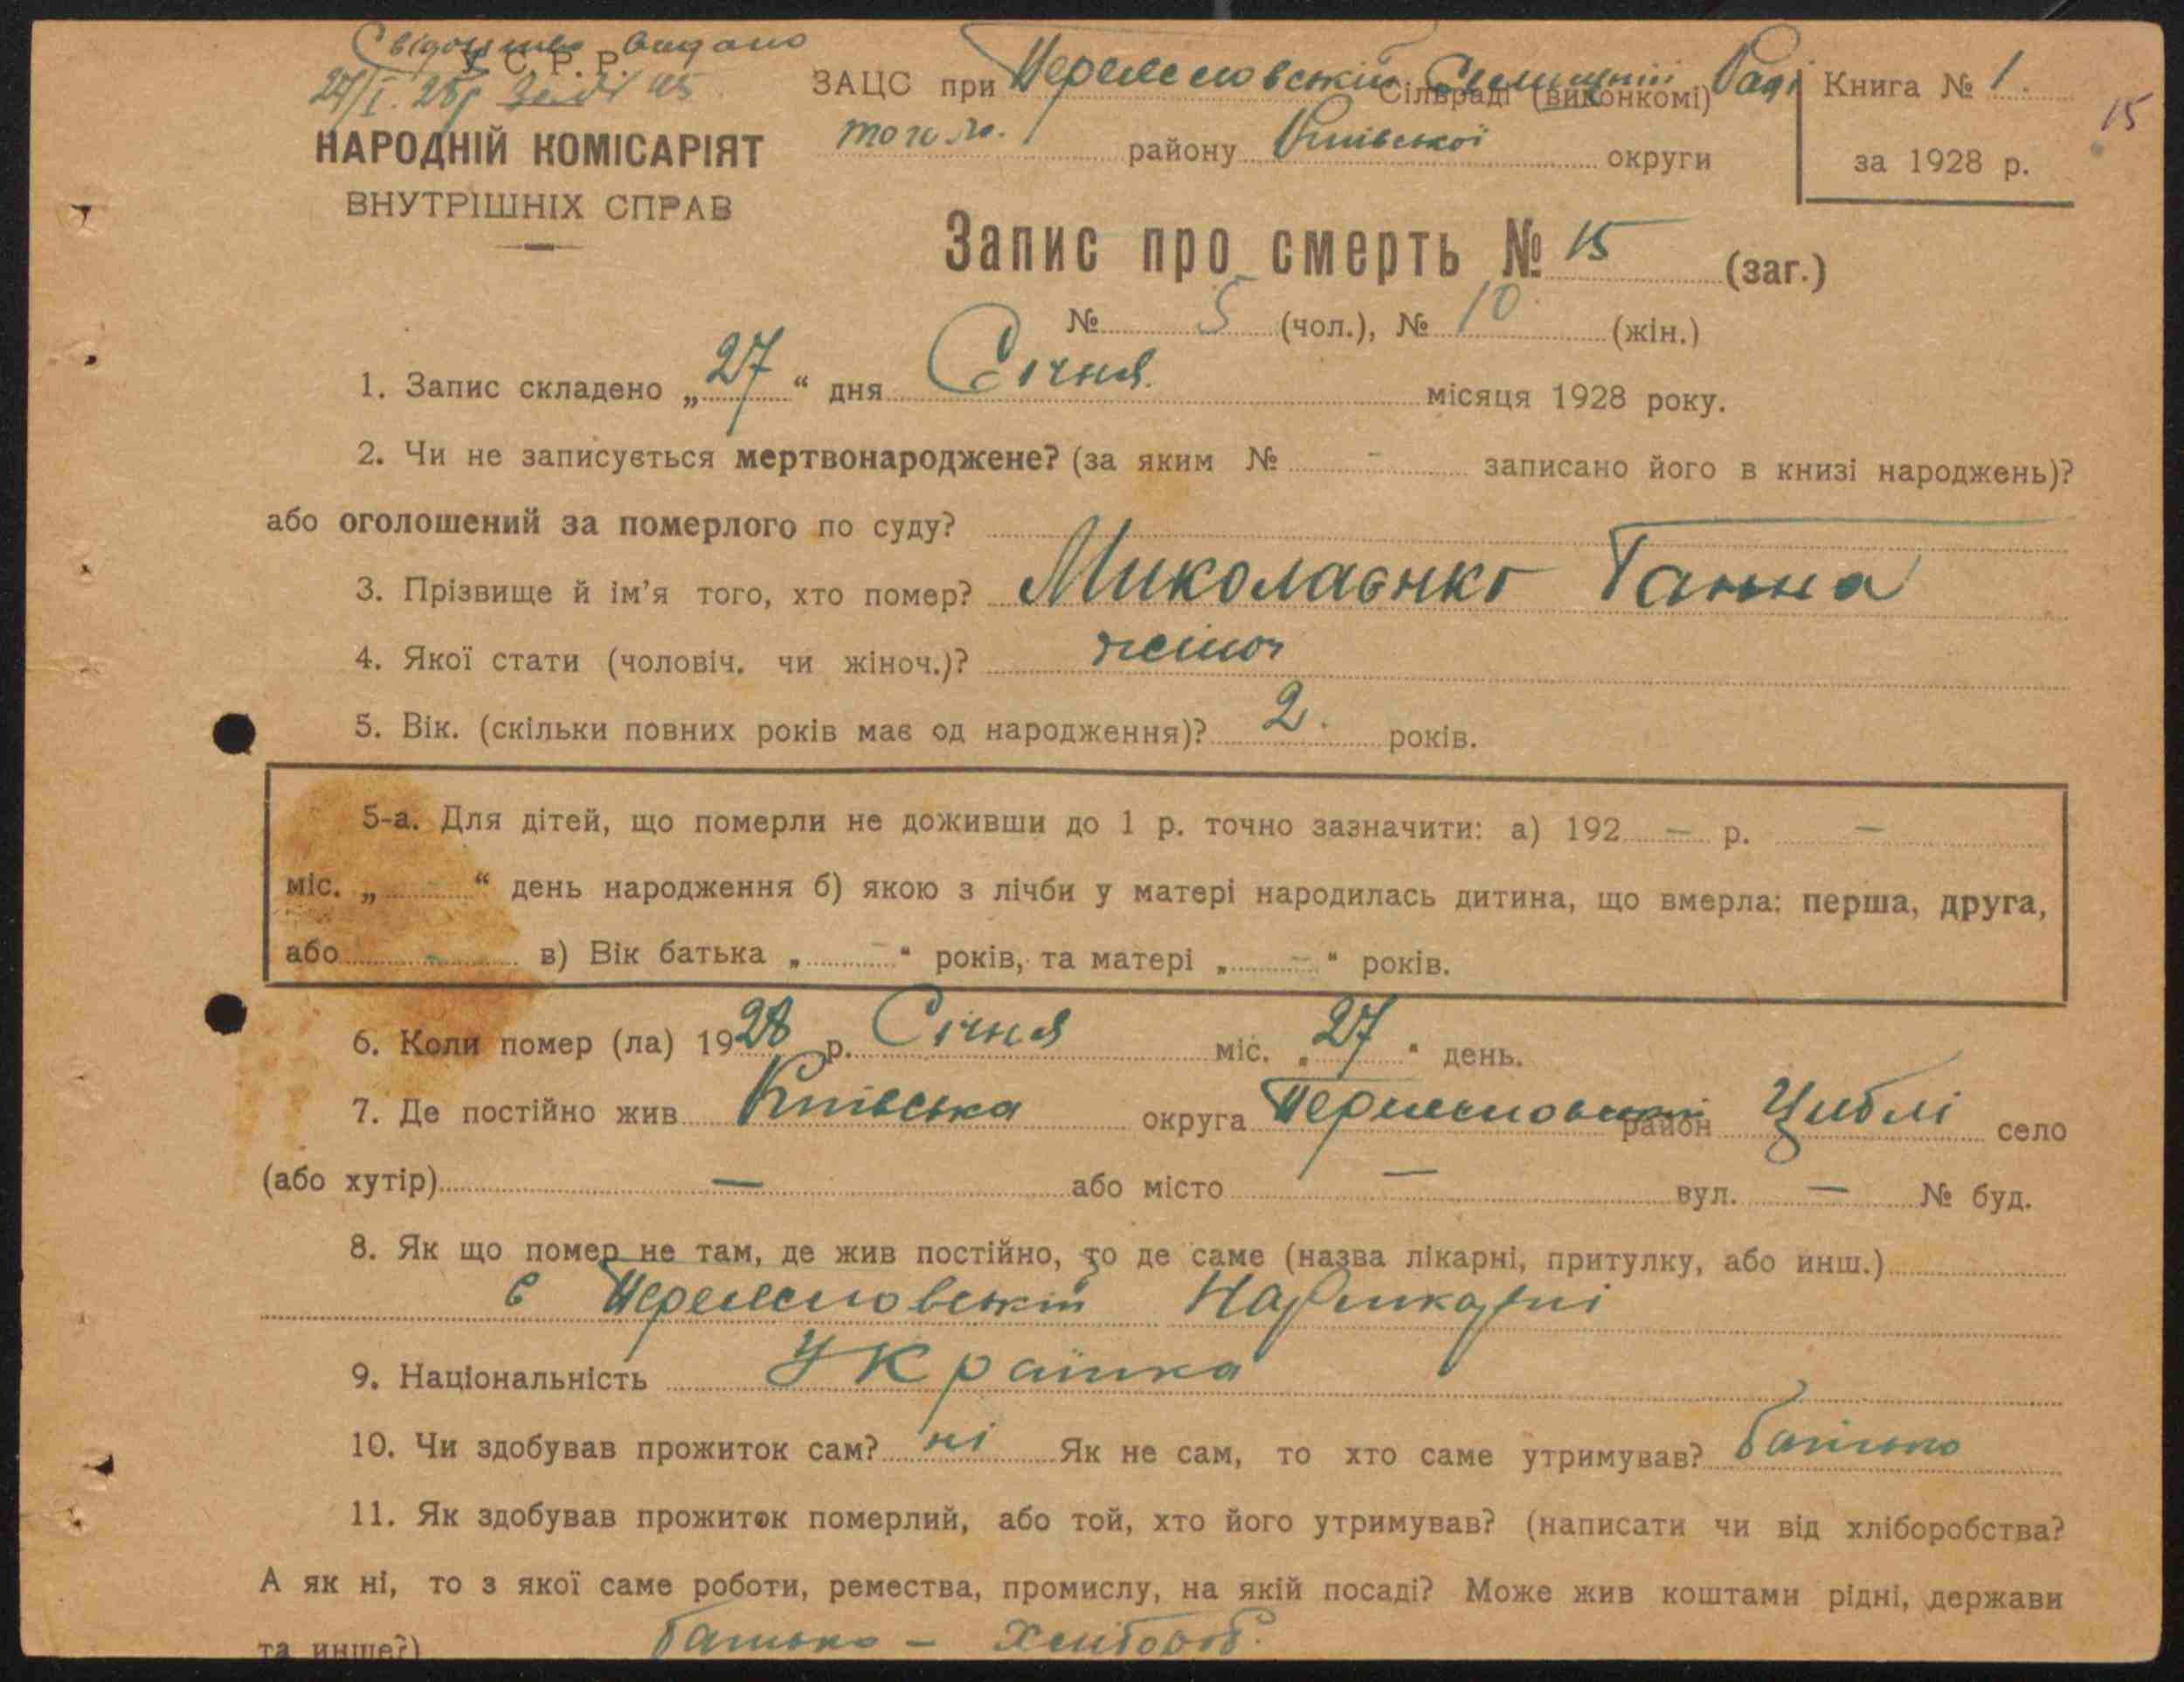 Свідоцтво видано
У. С. Р. Р.
27/I. 28р за № 15
НАРОДНІЙ КОМІСАРІЯТ
ВНУТРІШНІХ СПРАВ
ЗАЦС при Переяславській Селищній Раді Сільраді (виконкомі)
того ж. району Київської округи
Книга № 1.
за 1928 р.
15
Запис про смерть № 15 (заг.)
№ 5 (чол.), № 10 (жін.)
1. Запис складено „27“ дня Січня місяця 1928 року.
2. Чи не записується мертвонароджене? (за яким № - записано його в книзі народжень)?
або оголошений за померлого по суду?
3. Прізвище й ім’я того, хто помер? Миколаєнко Ганна
4. Якої стати (чоловіч. чи жіноч.)? жіноч
5. Вік. (скільки повних років має од народження)? 2. років.
5-а. Для дітей, що померли не доживши до 1 р. точно зазначити: а) 192 — р. —
міс. „ - “ день народження б) якою з лічби у матері народилась дитина, що вмерла: перша, друга,
або - в) Вік батька „ — “ років, та матері „ — “ років.
6. Коли помер (ла) 1928 р. Січня міс. „27“ день.
7. Де постійно жив Київська округа Переяславський район Циблі село
(або хутір) — або місто — вул. — № буд.
8. Як що помер не там, де жив постійно, то де саме (назва лікарні, притулку, або инш.)
в Переяславській Нарлікарні
9. Національність Українка
10. Чи здобував прожиток сам? ні Як не сам, то хто саме утримував? батько
11. Як здобував прожиток померлий, або той, хто його утримував? (написати чи від хліборобства?
А як ні, то з якої саме роботи, ремества, промислу, на якій посаді? Може жив коштами рідні, держави
та инше?) батько - хлібороб.